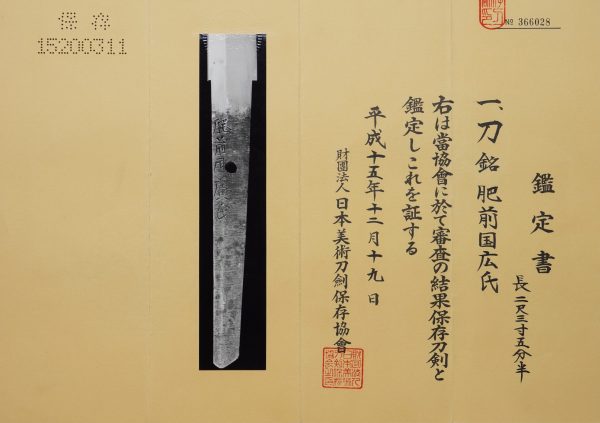 保存
15200311
№ 366028
鑑定書
一、刀 銘 肥前国広氏
長二尺三寸五分半
右は當協會に於て審査の結果保存刀剣と
鑑定しこれを証する
平成十五年十二月十九日
財團法人 日本美術刀劍保存協會